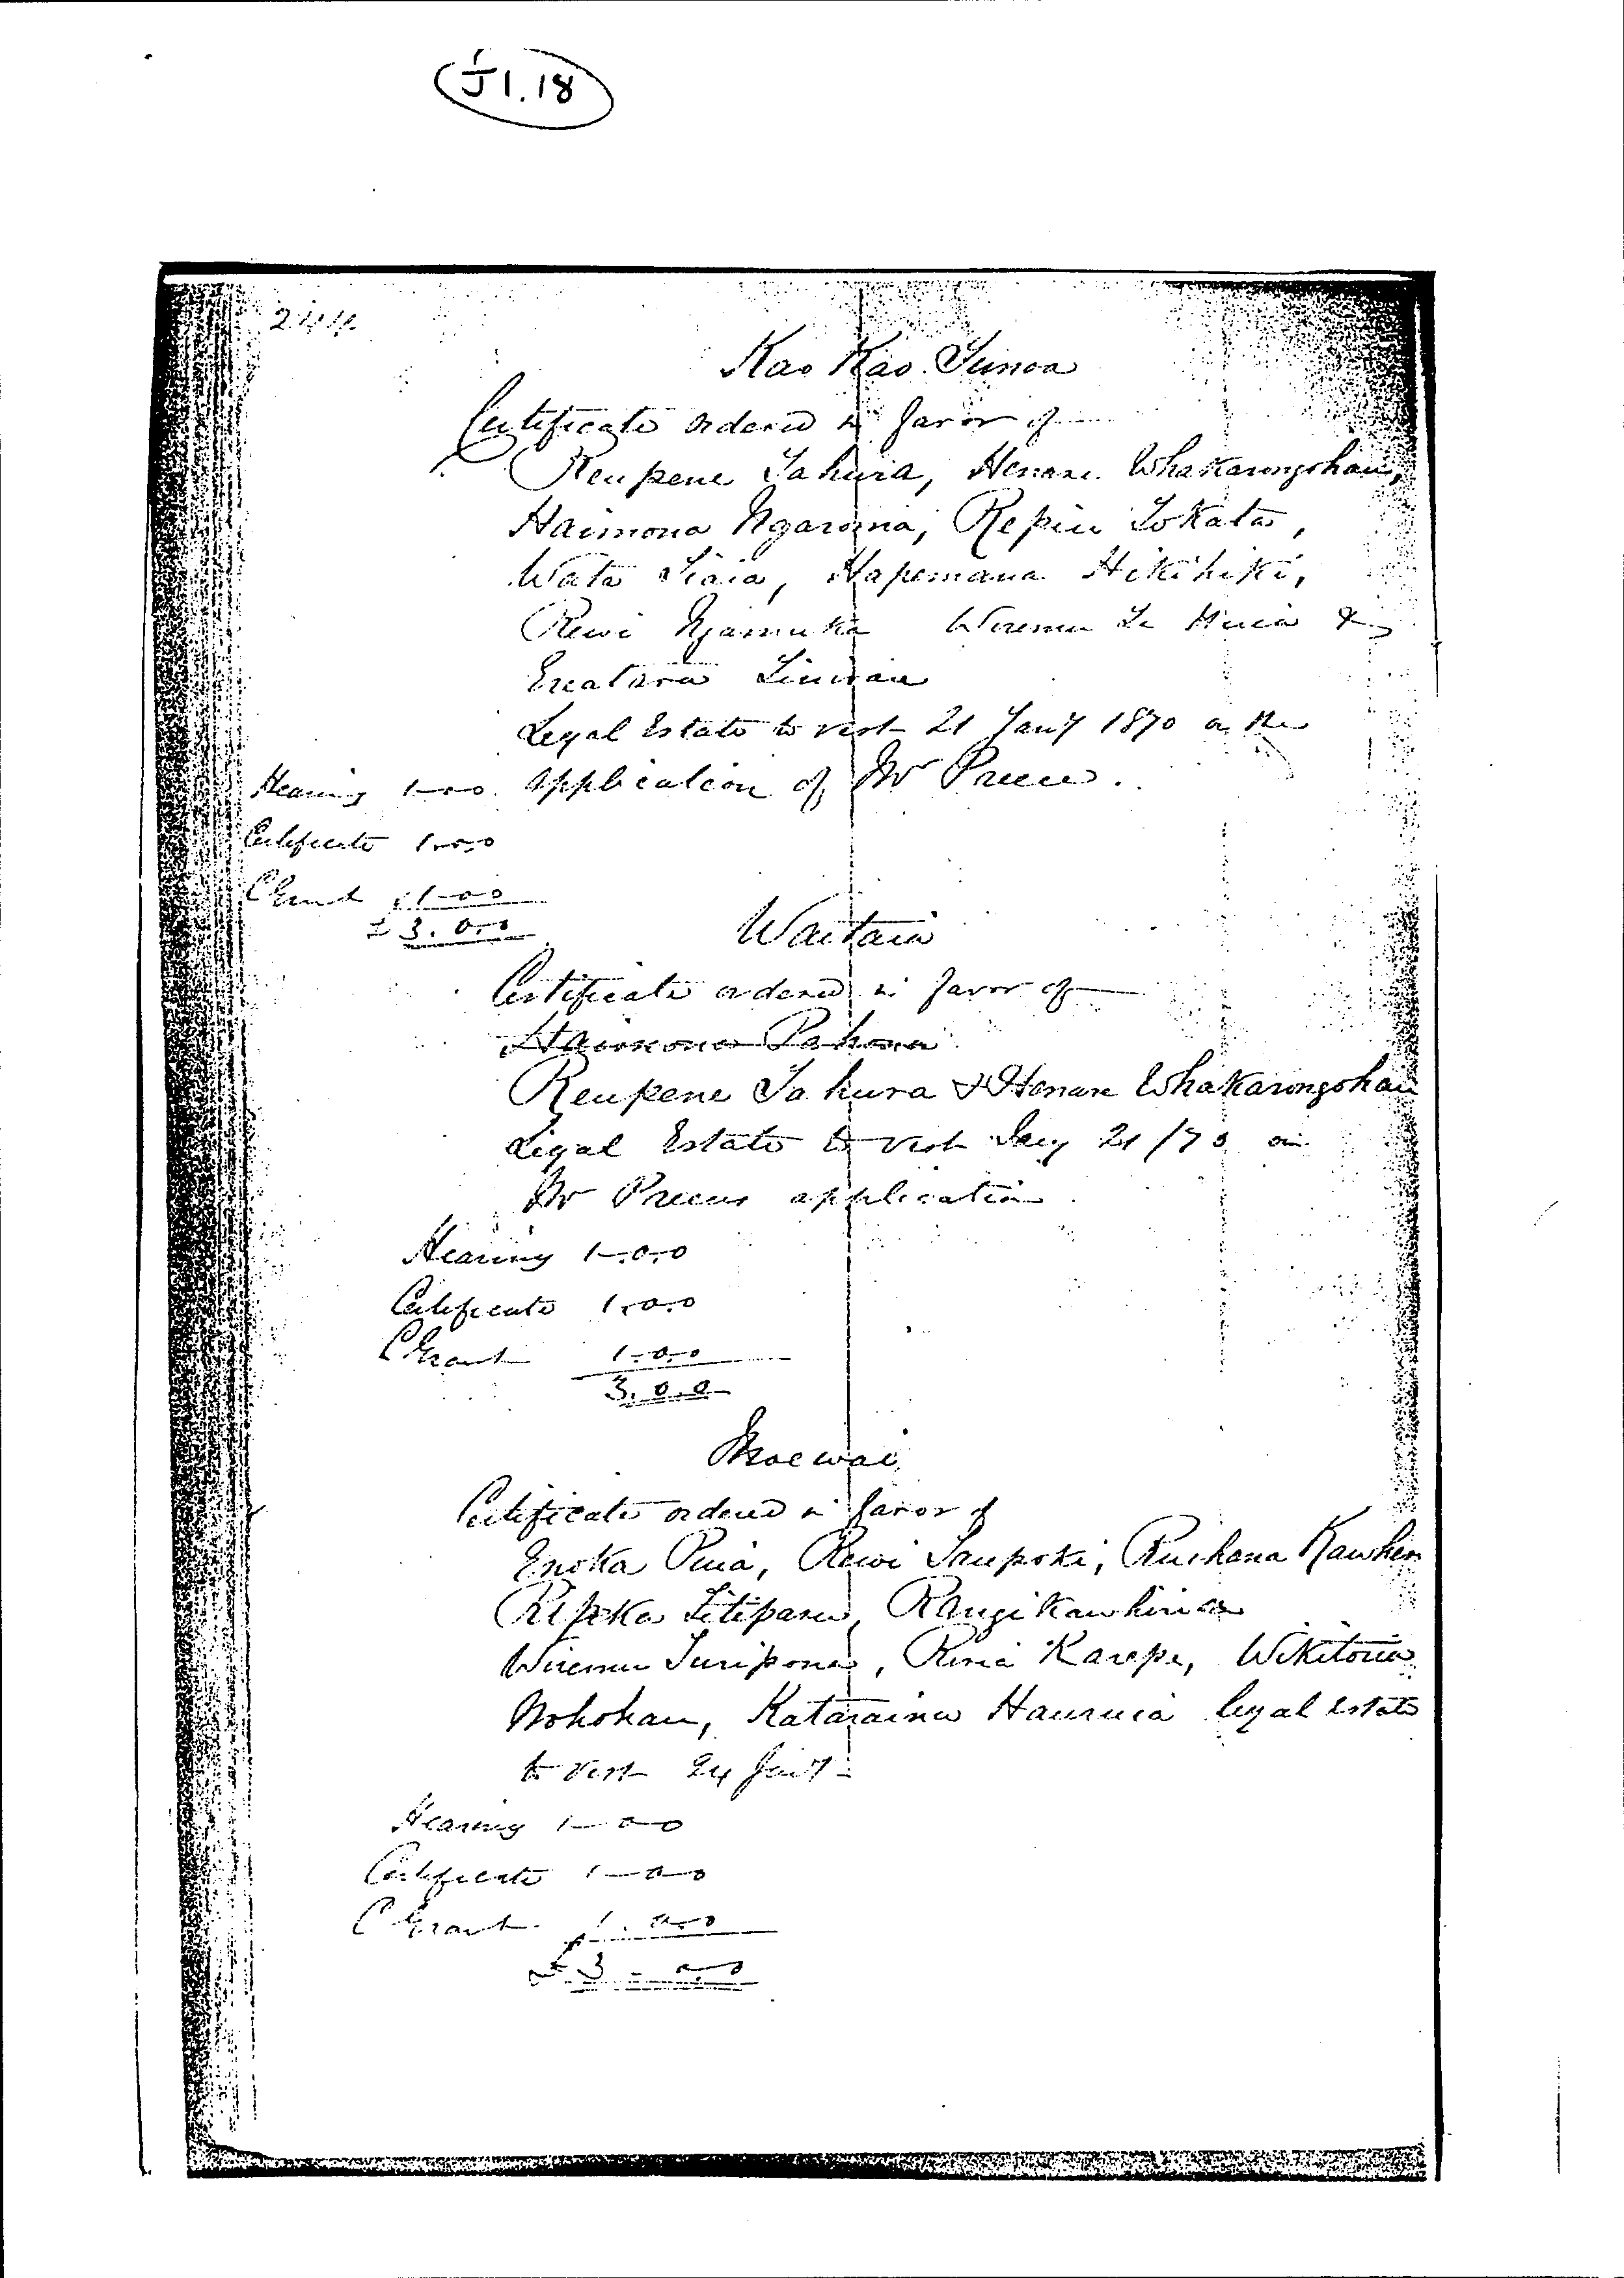 J1.18
244
Kao Kao
Certificate ordered in favor of
Reupene Tahura, Henare Whakarongohau,
Haimona Ngaroma,
Wata Tiaia, Hapemana Hikihiki,
Rewi Wiremu Te Huia &
Legal Estate to vest 21 Jany 1870 on the
Hearing 1-0-0 application of Mr Preece.
Certificate 1-0-0
C Grant 1-0-0
£ 3.0.0
Waitaia
Certificate ordered in favor of
Haimona Pahora
Reupene Tahura & Henare Whakarongohau
Legal Estate to vest Jany 21/70 on
Mr Preeces application
Hearing 1-0-0
Certificate 1-0-0
C Grant 1-0-0
3.0.0
Moewai
Certificate ordered in favor of
Enoka Puia, Rewi Taupoki,
Ripeka Titiparu, Rangikawhiria
Wiremu Turipona, Karepe, Wikitoria
Nohohau, Kataraina Hauruia legal estate
to vest 24 Jany
Hearing 1-0-0
Certificate 1-0-0
C Grant 1-0-0
£ 3-0-0